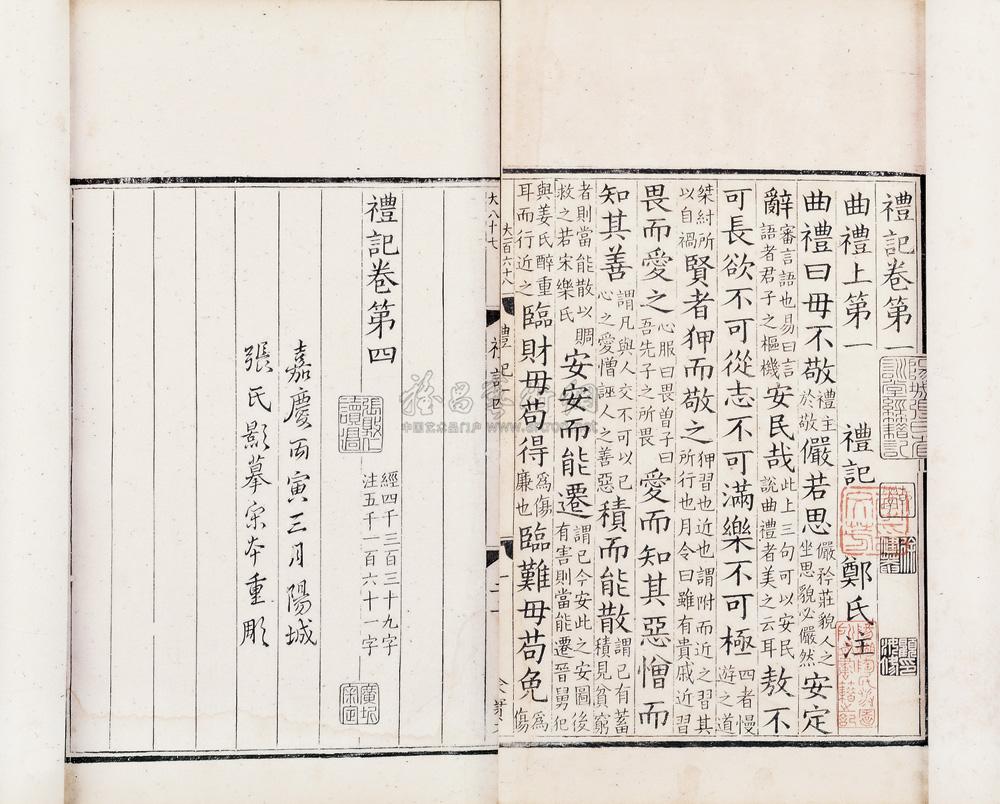 禮記卷第一
曲禮上第一 禮記 鄭氏注
曲禮曰毋不敬禮主於敬儼若思儼矜莊貌人之坐思貌必儼然安定
辭審言語也易曰言語者君子之樞機安民哉此上三句可以安民說曲禮者美之云耳敖不
可長欲不可從志不可滿樂不可極四者慢遊之道
桀紂所以自禍賢者狎而敬之狎習也近也謂附而近之習其所行也月令曰雖有貴戚近習
畏而愛之心服曰畏曾子曰吾先子之所畏愛而知其惡憎而
知其善謂凡與人交不可以己心之愛憎誣人之善惡積而能散謂己有蓄積見貧窮
者則當能散以賙救之若宋樂氏安安而能遷謂己今安此之安圖後有害則當能遷晉舅犯
與姜氏醉重耳而行近之臨財毋苟得為傷廉也臨難毋苟免為傷
大一百六十八
禮記一
大八十七
禮記四
禮記卷第四
經四千三百三十九字
注五千一百六十一字
嘉慶丙寅三月陽城
張氏影摹宋本重彫